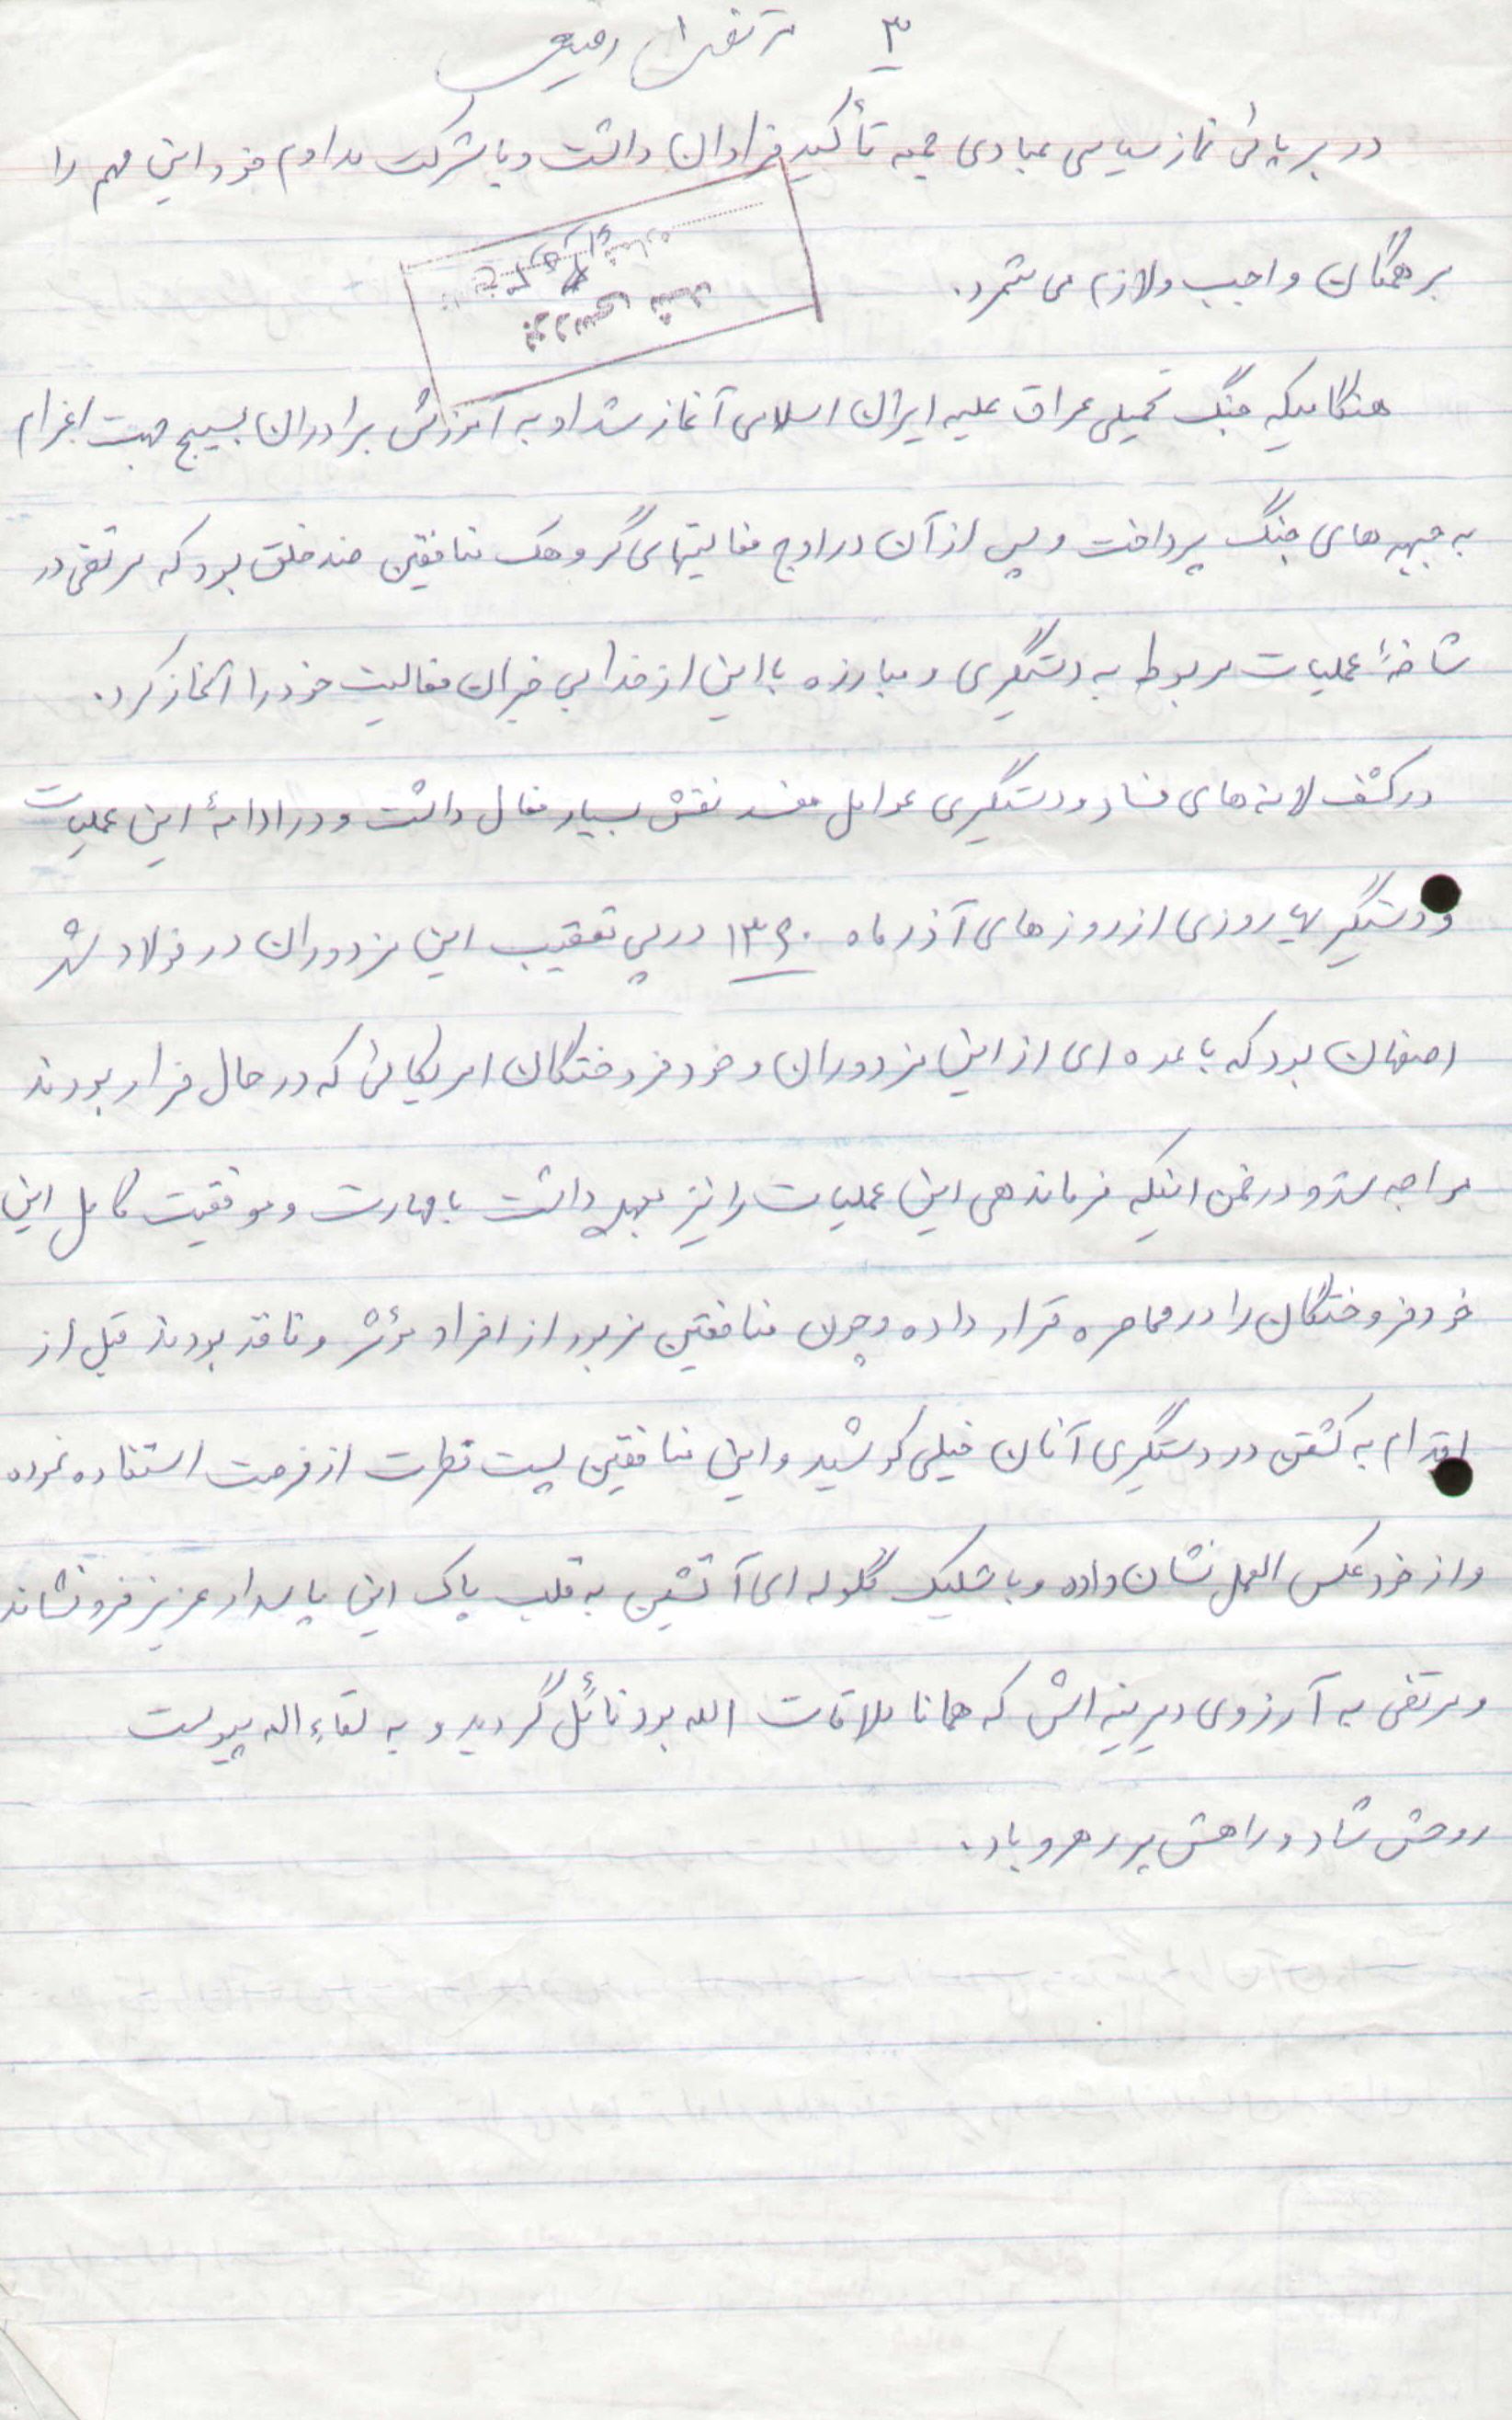 ۳ مرتضی رفیعی
در برپائی نماز سیاسی عبادی جمعه تأکید فراوان داشت و با شرکت مداوم خود این مهم را
بر همگان واجب و لازم می شمرد.
بررسی شد
هنگامیکه جنگ تحمیلی عراق علیه ایران اسلامی آغاز شد او به آموزش برادران بسیج جهت اعزام
به جبهه های جنگ پرداخت و پس از آن در اوج فعالیتهای گروهک منافقین ضد خلق بود که مرتضی در
شاخهٔ عملیات مربوط به دستگیری و مبارزه با این از خدا بی خبران فعالیت خود را آغاز کرد.
در کشف لانه های فساد و دستگیری عوامل مفسد نقش بسیار فعال داشت و در ادامهٔ این عملیات
و دستگیریها روزی از روزهای آذر ماه ۱۳۶۰ در پی تعقیب این مزدوران در فولاد شهر
اصفهان بود که با عده ای از این مزدوران و خود فروختگان امریکائی که در حال فرار بودند
مواجه شد و در ضمن اینکه فرماندهی این عملیات را نیز بعهده داشت با مهارت و موفقیت کامل این
خود فروختگان را در محاصره قرار داده و چون منافقین مزبور از افراد مؤثر و نافذ بودند قبل از
اقدام به کشتن در دستگیری آنان خیلی کوشید و این منافقین پست فطرت از فرصت استفاده نموده
و از خود عکس العمل نشان داده و با شلیک گلوله ای آتشین به قلب پاک این پاسدار عزیز فرو نشاند
و مرتضی به آرزوی دیرینه اش که همانا ملاقات الله بود نائل گردید و به لقاء اله پیوست
روحش شاد و راهش پر رهرو باد.